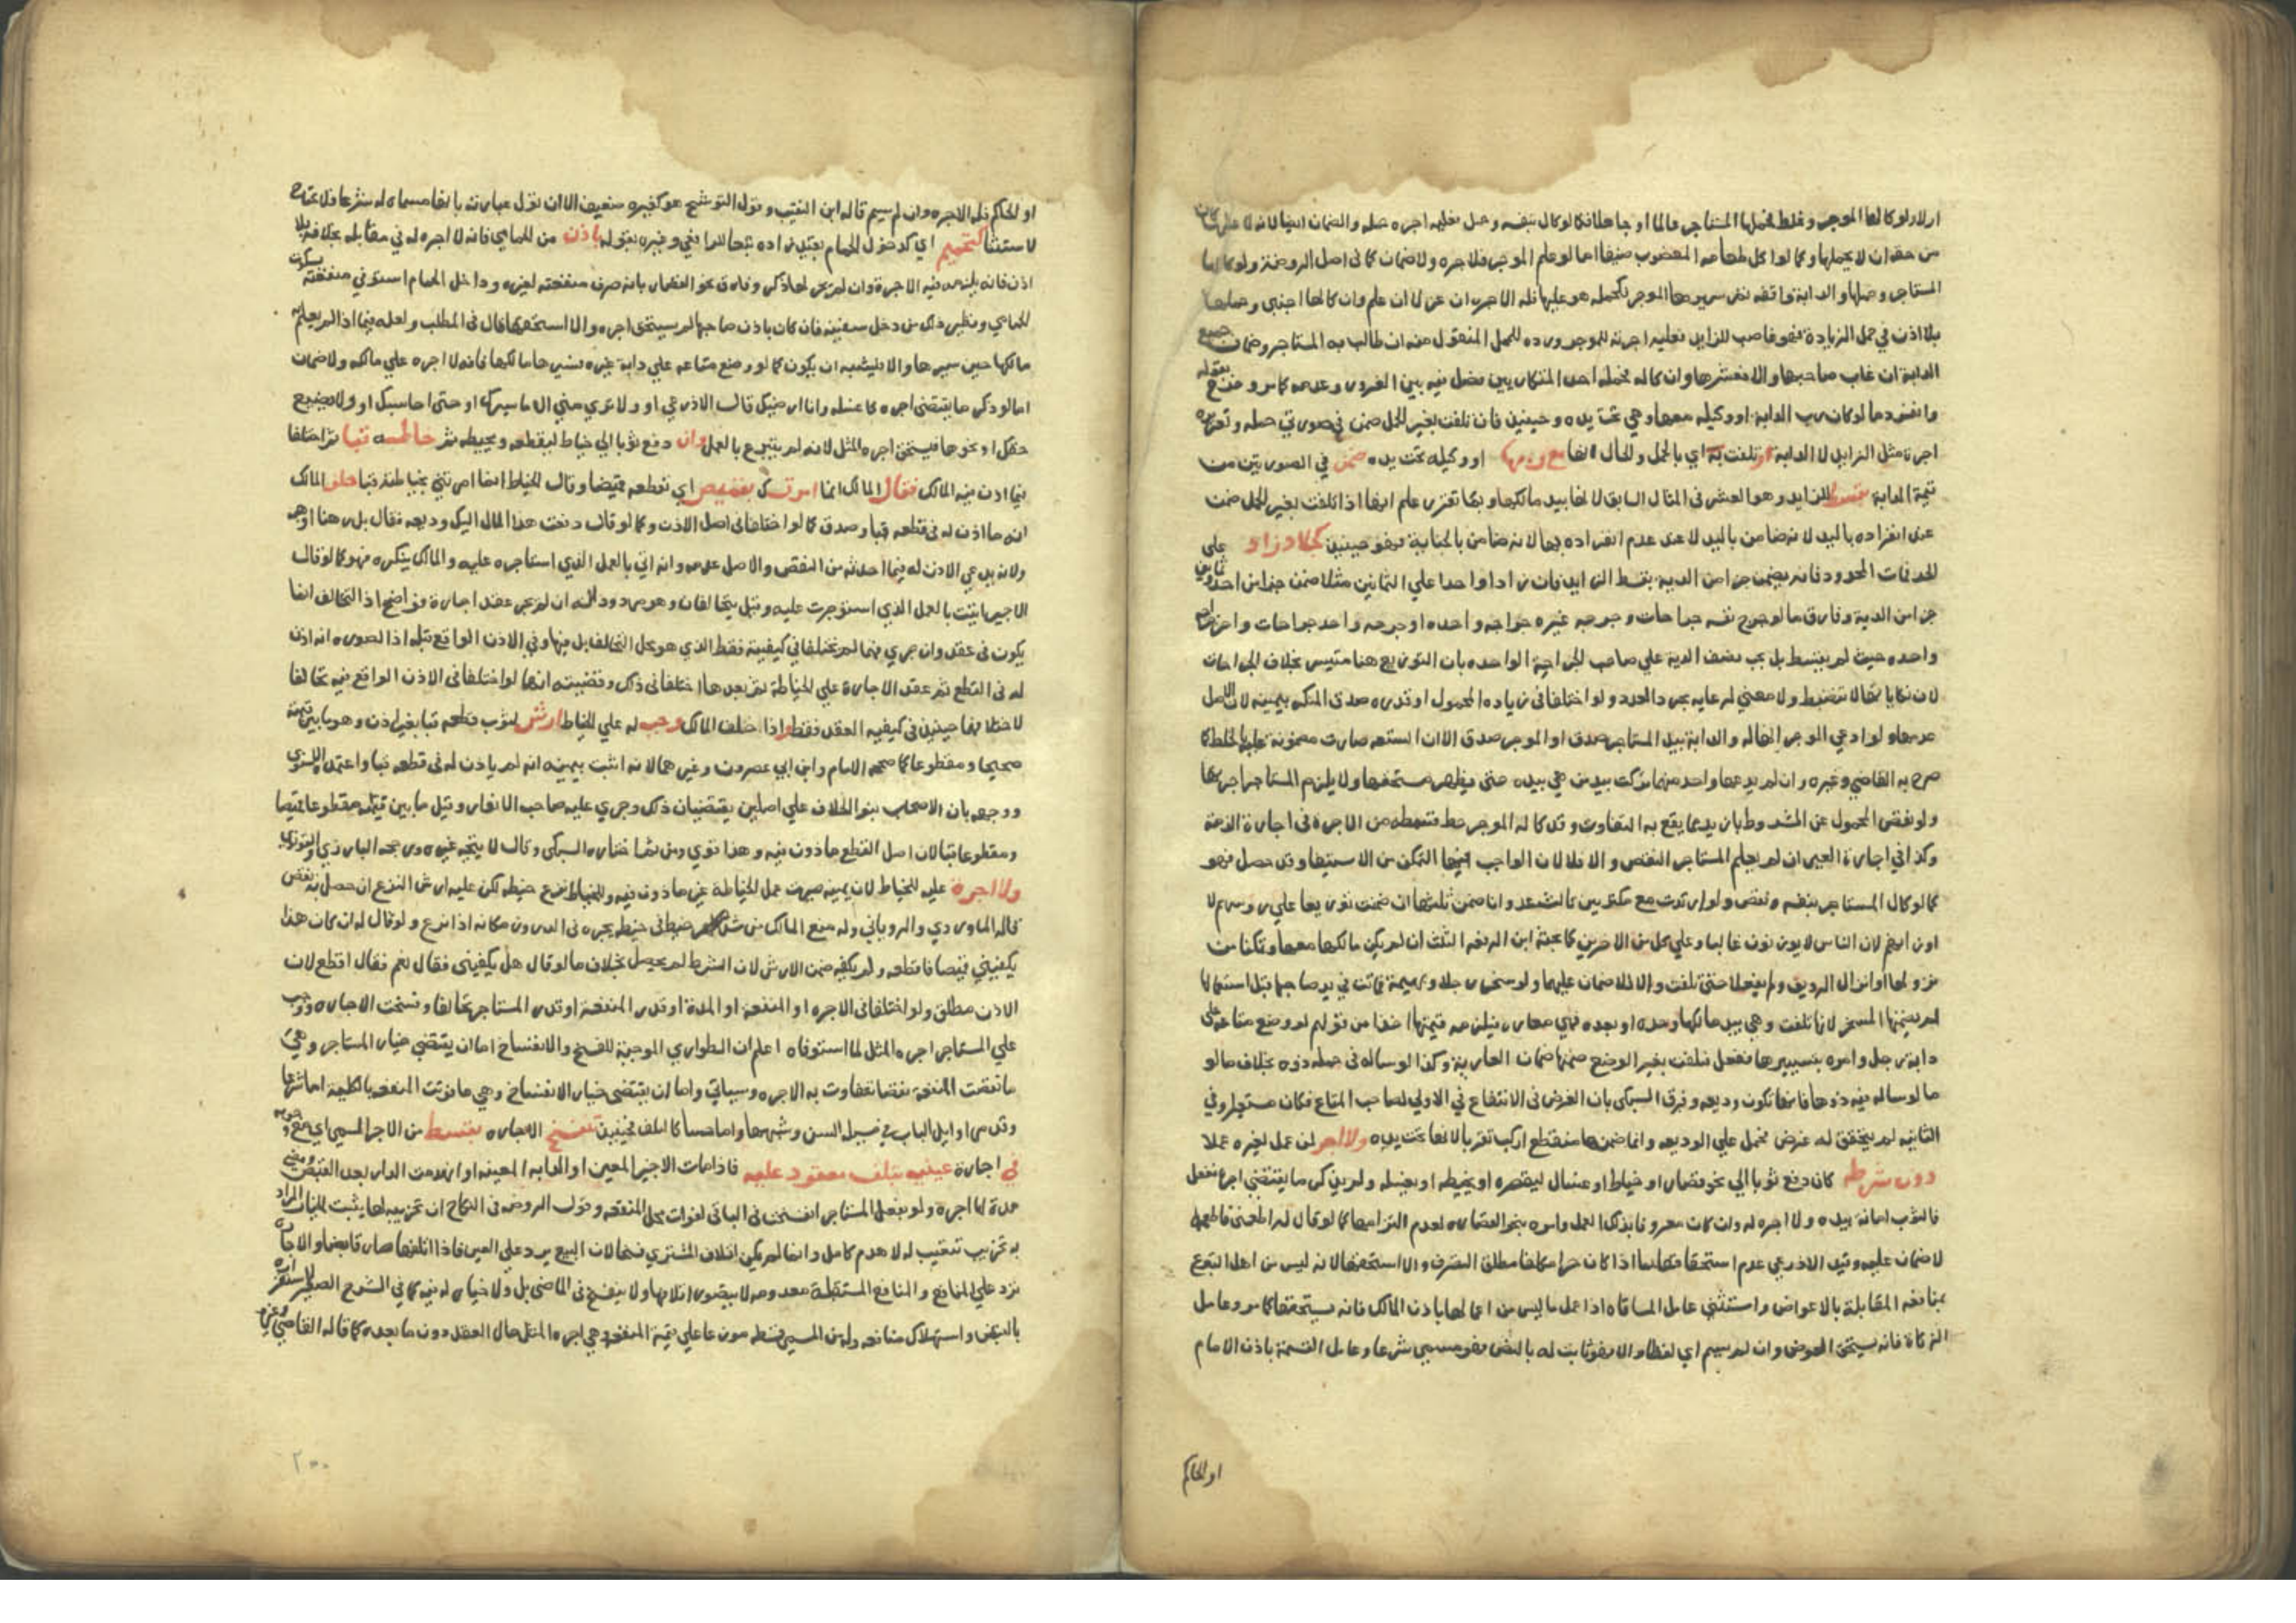 او لا ولو كالها الموجر وغلط فحملها المستاجر عالما او جاهلا فكما لو كال بنفسه وحمل فعليه اجره مثله والضمان ايضا لانه لا
من حقه ان لا يحملها وكما لو اكل طعامه المغصوب ضيفا اما لو علم الموجر فلا اجره ولا ضمان كما في اصل الروضة ولو كالها
المستاجر وحملها والدابة واقفه ثم سيرها الموجر فكحمله هو عليها فله الاجره ان علم وان كالها اجنبي وحملها
بلا اذن في حمل الزيادة فهو غاصب للزايد فعليه اجرته للموجر ورده للمحل المنقول منه ان طالب به المستاجر وضمان جميع
الدابة ان غاب صاحبها والا فعشرها وان كاله فحمله احد المتكاريين فصل فيه بين الغرور وعدمه كما مر وخرج بقوله
وانفرد ما لو كان رب الدابة او وكيله معها وهي تحت يده وحينئذ فان تلفت بغير الحمل ضمن في صورتي حمله وتغريره
اجرة مثل الزايد لا الدابة او تلفت به اي بالحمل والحال انها مع ربها او وكيله تحت يده ضمن في الصورتين من
قيمة الدابة بقسط الزايد وهو العشر في المثال السابق لانها بيد مالكها وبما تقرر علم انها اذا تلفت بغير الحمل ضمن
عند انفراده باليد لانه ضامن باليد لا عند عدم انفراده بها لانه ضامن بالجناية فهو حينئذ كجلاد زاد على
الحد فمات المحدود فانه يضمن جزا من الدية بقسط الزايد فان زاد واحدا علي الثمانين مثلا ضمن جزا من احد وثمانين
جزا من الدية وفارق ما لو جرح نفسه جراحات وجرحه غيره جراحه واحده او جرحه واحد جراحات واخر جراحه
واحده حيث لم يقسط بل يجب نصف الدية علي صاحب الجراحة الواحده بان التوزيع هنا متيسر بخلاف الجراحات
لان نكاياتها لا تنضبط ولا معني لرعايه مجرد العدد ولو اختلفا في زياده المحمول او قدره صدق المنكر بيمينه لان الاصل
عدمها ولو ادعي الموجر الحاله والدابة بيد المستاجر صدق او الموجر صدق الا ان السلعه صارت مضمونة عليه بالخلط كما
صرح به القاضي وغيره وان لم يدعها واحد منهما تركت بيد من هي بيده حتى يظهر مستحقها ولا يلزم المستاجر اجرتها
ولو نقص المحمول عن المشروط بان يدعما يقع به التفاوت وقد كاله الموجر حط قسطه من الاجرة في اجارة الذمة
وكذا في اجارة العين ان لم يعلم المستاجر النقص والا فلا لان الواجب فيها التمكن من الاستيفا وقد حصل فهو
كما لو كال المستاجر بنفسه ونقص ولو ارتدف مع مكتريين ثالث تعد وانا ضمن ثلثها ان ضمنت توزيعا علي روسهم لا
اوزانهم لان الناس لا يوزنون غالبا وعلي كل من الاخرين كما بحثه ابن الرفعه الثلث ان لم يكن مالكها معها وتمكنا من
نزولها او انزال الرديف ولم يفعلا حتى تلفت والا فلا ضمان عليهما ولو سخر رجلا وبهيمة فماتت في يد صاحبها قبل استعمالها
لم يضمنها المسخر لانها تلفت وهي بيد مالكها وحده او بعده فهي معاره فيلزمه قيمتها اخذا من قولهم لو وضع متاعه علي
دابة رجل وامره بتسييرها ففعل فتلفت بغير الوضع ضمنها ضمان العارية وكذا لو ساله في حمله ذوه بخلاف ما لو
ما لو ساله فيه ذوها فانها تكون وديعه وفرق السبكي بان الغرض في الانتفاع في الاولي لصاحب المتاع فكان مستعيرا وفي
الثانيه لم يتحقق له غرض فحمل علي الوديعه وانما ضمنها منقطع اركب تقربا لانها تحت يده ولا اجر لمن عمل لغيره عملا
دون شرطه كان دفع ثوبا الي نحو قصار او خياط او غسال ليقصره او يخيطه او يغسله ولم يذكر ما يقتضي اجره ففعل
فالثوب امانه بيده ولا اجره له وان كان معروفا بذلك العمل وامره بنحو القصاره لعدم التزامها كما لو قال له اطعمني فاطعمه
لا ضمان عليه وقيد الاذرعي عدم استحقاقها بما اذا كان حرا مكلفا مطلق التصرف والا استحقها لانه ليس من اهل التبرع
بمنافعه المقابلة بالاعواض واستثني عامل المساقاه اذا عمل ما ليس من اعمالها باذن المالك فانه يستحقها كما مر وعامل
الزكاة فانه يستحق العوض وان لم يسم اي لفظا والا فهو ثابت له بالنص فهو مسمي شرعا وعامل القسمة باذن الامام
او الحاكم
او الحاكم فله الاجره وان لم يسم قاله ابن النقيب وقول التوشيح هو كغيره ضعيف الا ان تؤل عبارته بانها مسماه له شرعا فلا تحتاج
لاستثنا كتحميم اي كدخول الحمام بقيد زاده تبعا للرافعي وغيره بقوله باذن من الحمامي فانه لا اجره له في مقابله بخلافه بلا
اذن فانه يلزمه فيه الاجرة وان لم يجر لها ذكر وفارق نحو القصار بانه صرف منفعته لغيره وداخل الحمام استوفي منفعة بسكوت
الحمامي ونظير ذلك من دخل سفينه فان كان باذن صاحبها لم يستحق اجره والا استحقها قال في المطلب ولعله فيما اذا لم يعلم به
مالكها حين سيرها والا فليشبه ان يكون كما لو وضع متاعه علي دابة غيره فسيرها مالكها فانه لا اجره علي مالكه ولا ضمان
اما لو ذكر ما يقتضي اجره كاغسله وانا ارضيك قال الاذرعي او ولا تري مني الا ما يسرك او حتى احاسبك او ولا يضيع
حقك او نحوها فيستحق اجره المثل لانه لم يتبرع بالعمل وان دفع ثوبا الي خياط ليقطعه ويخيطه ثم خاطه قبا ثم اختلفا
فيما اذن فيه المالك فقال المالك انما امرتك بقميص اي بقطعه قميصا وقال الخياط انما امرتني بخياطته قبا حلف المالك
انه ما اذن له في قطعه قبا وصدق كما لو اختلفا في اصل الاذن وكما لو قال دفعت هذا المال اليك وديعه فقال بل رهنا او هبه
ولانه يدعي الاذن له فيما احدثه من النقص والاصل عدمه وانه اتي بالعمل الذي استاجره عليه والمالك ينكره فهو كما لو قال
الاجير اتيت بالعمل الذي استؤجرت عليه وقيل يتحالفان وهو مردود لانه ان لم يجر عقد اجارة فواضح اذ التحالف انما
يكون في عقد وان جري فهما لم يختلفا في كيفيته فقط الذي هو محل التحالف بل فيها وفي الاذن الواقع قبله اذ الصوره انه اذن
له في القطع ثم عقد الاجارة علي الخياطة ثم بعدها اختلفا في ذلك وقضيته انهما لو اختلفا في الاذن الواقع فيه تحالفا
لاختلافهما حينئذ في كيفيه العقد فقط واذا حلف المالك وجب له علي الخياط ارش لثوب قطعه قبا بغير اذن وهو ما بين قيمته
صحيحا ومقطوعا كما صححه الامام وابن ابي عصرون وغيرهما لانه اثبت بيمينه انه لم ياذن له في قطعه قبا واعتمده الاسنوي
ووجهه بان الاصحاب بنوا الخلاف علي اصلين يقتضيان ذلك وجري عليه صاحب الانوار وقيل ما بين قيمته مقطوعا قميصا
ومقطوعا قبا لان اصل القطع ماذون فيه وهذا قوي ومن ثم اختاره السبكي وقال لا يتجه غيره ورجحه البارزي
ولا اجرة عليه للخياط لان يمينه صيرت عمل الخياطة غير ماذون فيه وللخياط نزع خيطه لكن عليه ارش النزع ان حصل به نقص
قاله الماوردي والروياني وله منع المالك من شد خيط في خيطه يجره في الدروز مكانه اذا نزع ولو قال له ان كان هذا
يكفيني قميصا فاقطعه ولم يكفه ضمن الارش لان الشرط لم يحصل بخلاف ما لو قال هل يكفيني فقال نعم فقال اقطع لان
الاذن مطلق ولو اختلفا في الاجره او المنفعة او المدة او قدر المنفعة او قدر المستاجر تحالفا وفسخت الاجاره ووجب
علي المستاجر اجره المثل لما استوفاه اعلم ان الطواري الموجبة للفسخ والانفساخ اما ان يقتضي خيار المستاجر وهي
ما نقصت المنفعة نقصا تتفاوت به الاجره وسياتي واما ان يقتضي خيار الانفساخ وهي ما فوتت المنفعه بالكلية اما شرعا
وقد مر اوايل الباب في نحو السن وشبهها واما حسا كالتلف فحينئذ تنفسخ الاجاره بقسط من الاجر المسمي اي مع
في اجارة عينيه بتلف معقود عليه فاذا مات الاجير المعين او الدابه المعينه او انهدمت الدار بعد القبض ومضي
مدة لها اجره ولو بفعل المستاجر انفسخت في الباقي لفوات محل المنفعه وقول الروضه في النكاح ان تخريبه لها يثبت للخيار المراد
به تخريب تعييب له لا هدم كامل وانما لم يكن اتلاف المشتري فسخا لان البيع يرد علي العين فاذا اتلفها صار قابضا والاجارة
ترد علي المنافع والمنافع المستقبلة معدومه لا يتصور اتلافها ولا ينفسخ في الماضي بل ولا خيار له فيه كما في الشرح الصغير لاستقراره
بالقبض واستهلاك منافعه وله من المسمي قسطه موزعا علي قيمة المنفعه وهي اجره المثل حال العقد دون ما بعده كما قاله القاضي وغيره
٢٠٠